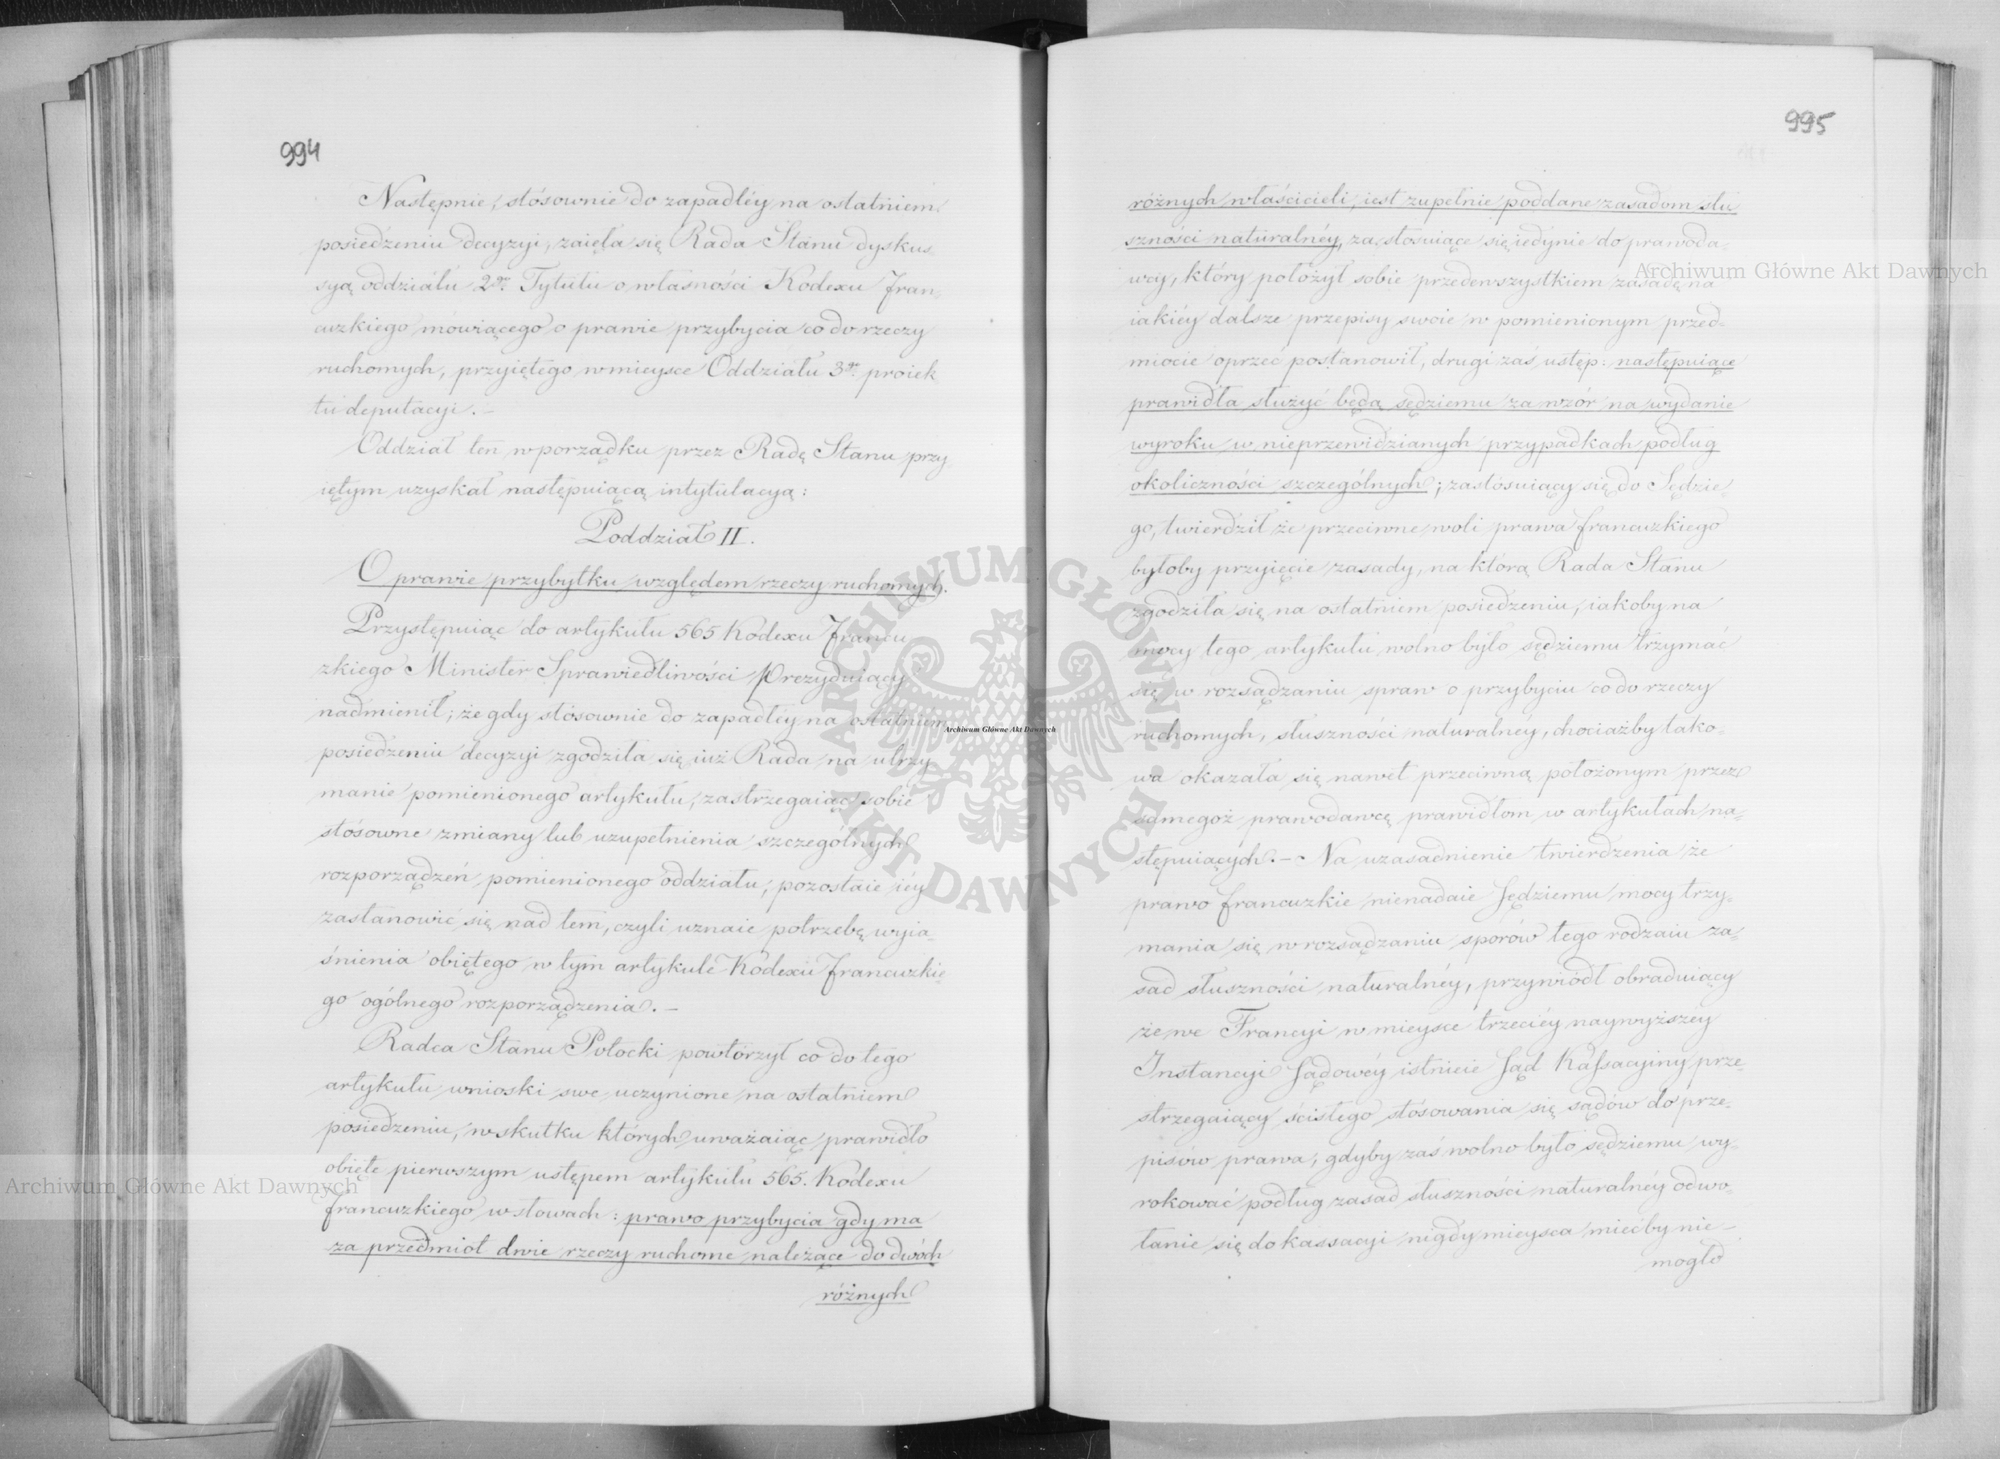 994
Następnie, stósownie do zapadłéy na ostatniem
posiedzeniu decyzyi, zaięła się Rada Stanu dyskus
syą oddziału 2go Tytułu o własności Kodexu Fran-
cuzkiego mówiącego o prawie przybycia co do rzeczy
ruchomych, przyiętego w mieysce Oddziału 3go proiek
tu deputacyi. –
Oddział ten w porządku przez Radę Stanu przy-
iętym uzyskał następuiącą intytulacyą:
Poddział II.
O prawie przybytku względem rzeczy ruchomych.
Przystępuiąc do artykułu 565 Kodexu Francu
zkiego Minister Sprawiedliwości Prezyduiący
nadmienił; że gdy stósownie do zapadłéy na ostatniem
posiedzeniu decyzyi zgodziła się iuż Rada na utrzy
manie pomienionego artykułu, zastrzegaiąc sobie
stósowne zmiany lub uzupełnienia szczególnych
rozporządzeń pomienionego oddziału, pozostaie iéy
zastanowić się nad tem, czyli uznaie potrzebę wyia-
śnienia obiętego w tym artykule Kodexu francuzkie
go ogólnego rozporządzenia. –
Radca Stanu Potocki powtórzył co do tego
artykułu wnioski swe uczynione na ostatniem
posiedzeniu, w skutku których uważaiąc prawidło
obięte pierwszym ustępem artykułu 565. Kodexu
francuzkiego w słowach: prawo przybycia gdy ma
za przedmiot dwie rzeczy ruchome należące do dwóch
różnych
995
różnych właścicieli, iest zupełnie poddane zasadom słu
szności naturalnéy, za stosuiące się iedynie do prawoda-
wcy, który położył sobie przedewszystkiem zasadę na
iakiéy dalsze przepisy swoie w pomienionym przed-
miocie oprzeć postanowił, drugi zaś ustęp: następuiące
prawidła służyć będą sędziemu za wzór na wydanie
wyroku w nieprzewidzianych przypadkach podług
okoliczności szczególnych; zastósuiący się do Sędzie-
go, twierdził że przeciwne woli prawa francuzkiego
byłoby przyięcie zasady, na którą Rada Stanu
zgodziła się na ostatniem posiedzeniu, iakoby na
mocy tego artykułu wolno było sędziemu trzymać
się w rozsądzaniu spraw o przybyciu co do rzeczy
ruchomych, słuszności naturalnéy, chociażby tako-
wa okazała się nawet przeciwną położonym przez
samegoż prawodawcę prawidłom w artykułach na-
stępuiących. – Na uzasadnienie twierdzenia że
prawo francuzkie nienadaie Sędziemu mocy trzy-
mania się w rozsądzaniu sporów tego rodzaiu za-
sad słuszności naturalnéy, przywiódł obraduiący
że we Francyi w mieysce trzeciéy naywyższey
Instancyi Sądowéy istnieie Sąd Kassacyiny prze-
strzegaiący ścisłego stósowania się sądów do prze-
pisów prawa, gdyby zaś wolno było sędziemu wy-
rokować podług zasad słuszności naturalnéy odwo-
łanie się do kassacyi nigdy mieysca mieć by nie
mogło
Archiwum Główne Akt Dawnych
Archiwum Główne Akt Dawnych
Archiwum Główne Akt Dawnych
ARCHIWUM GŁÓWNE · AKT DAWNYCH ·